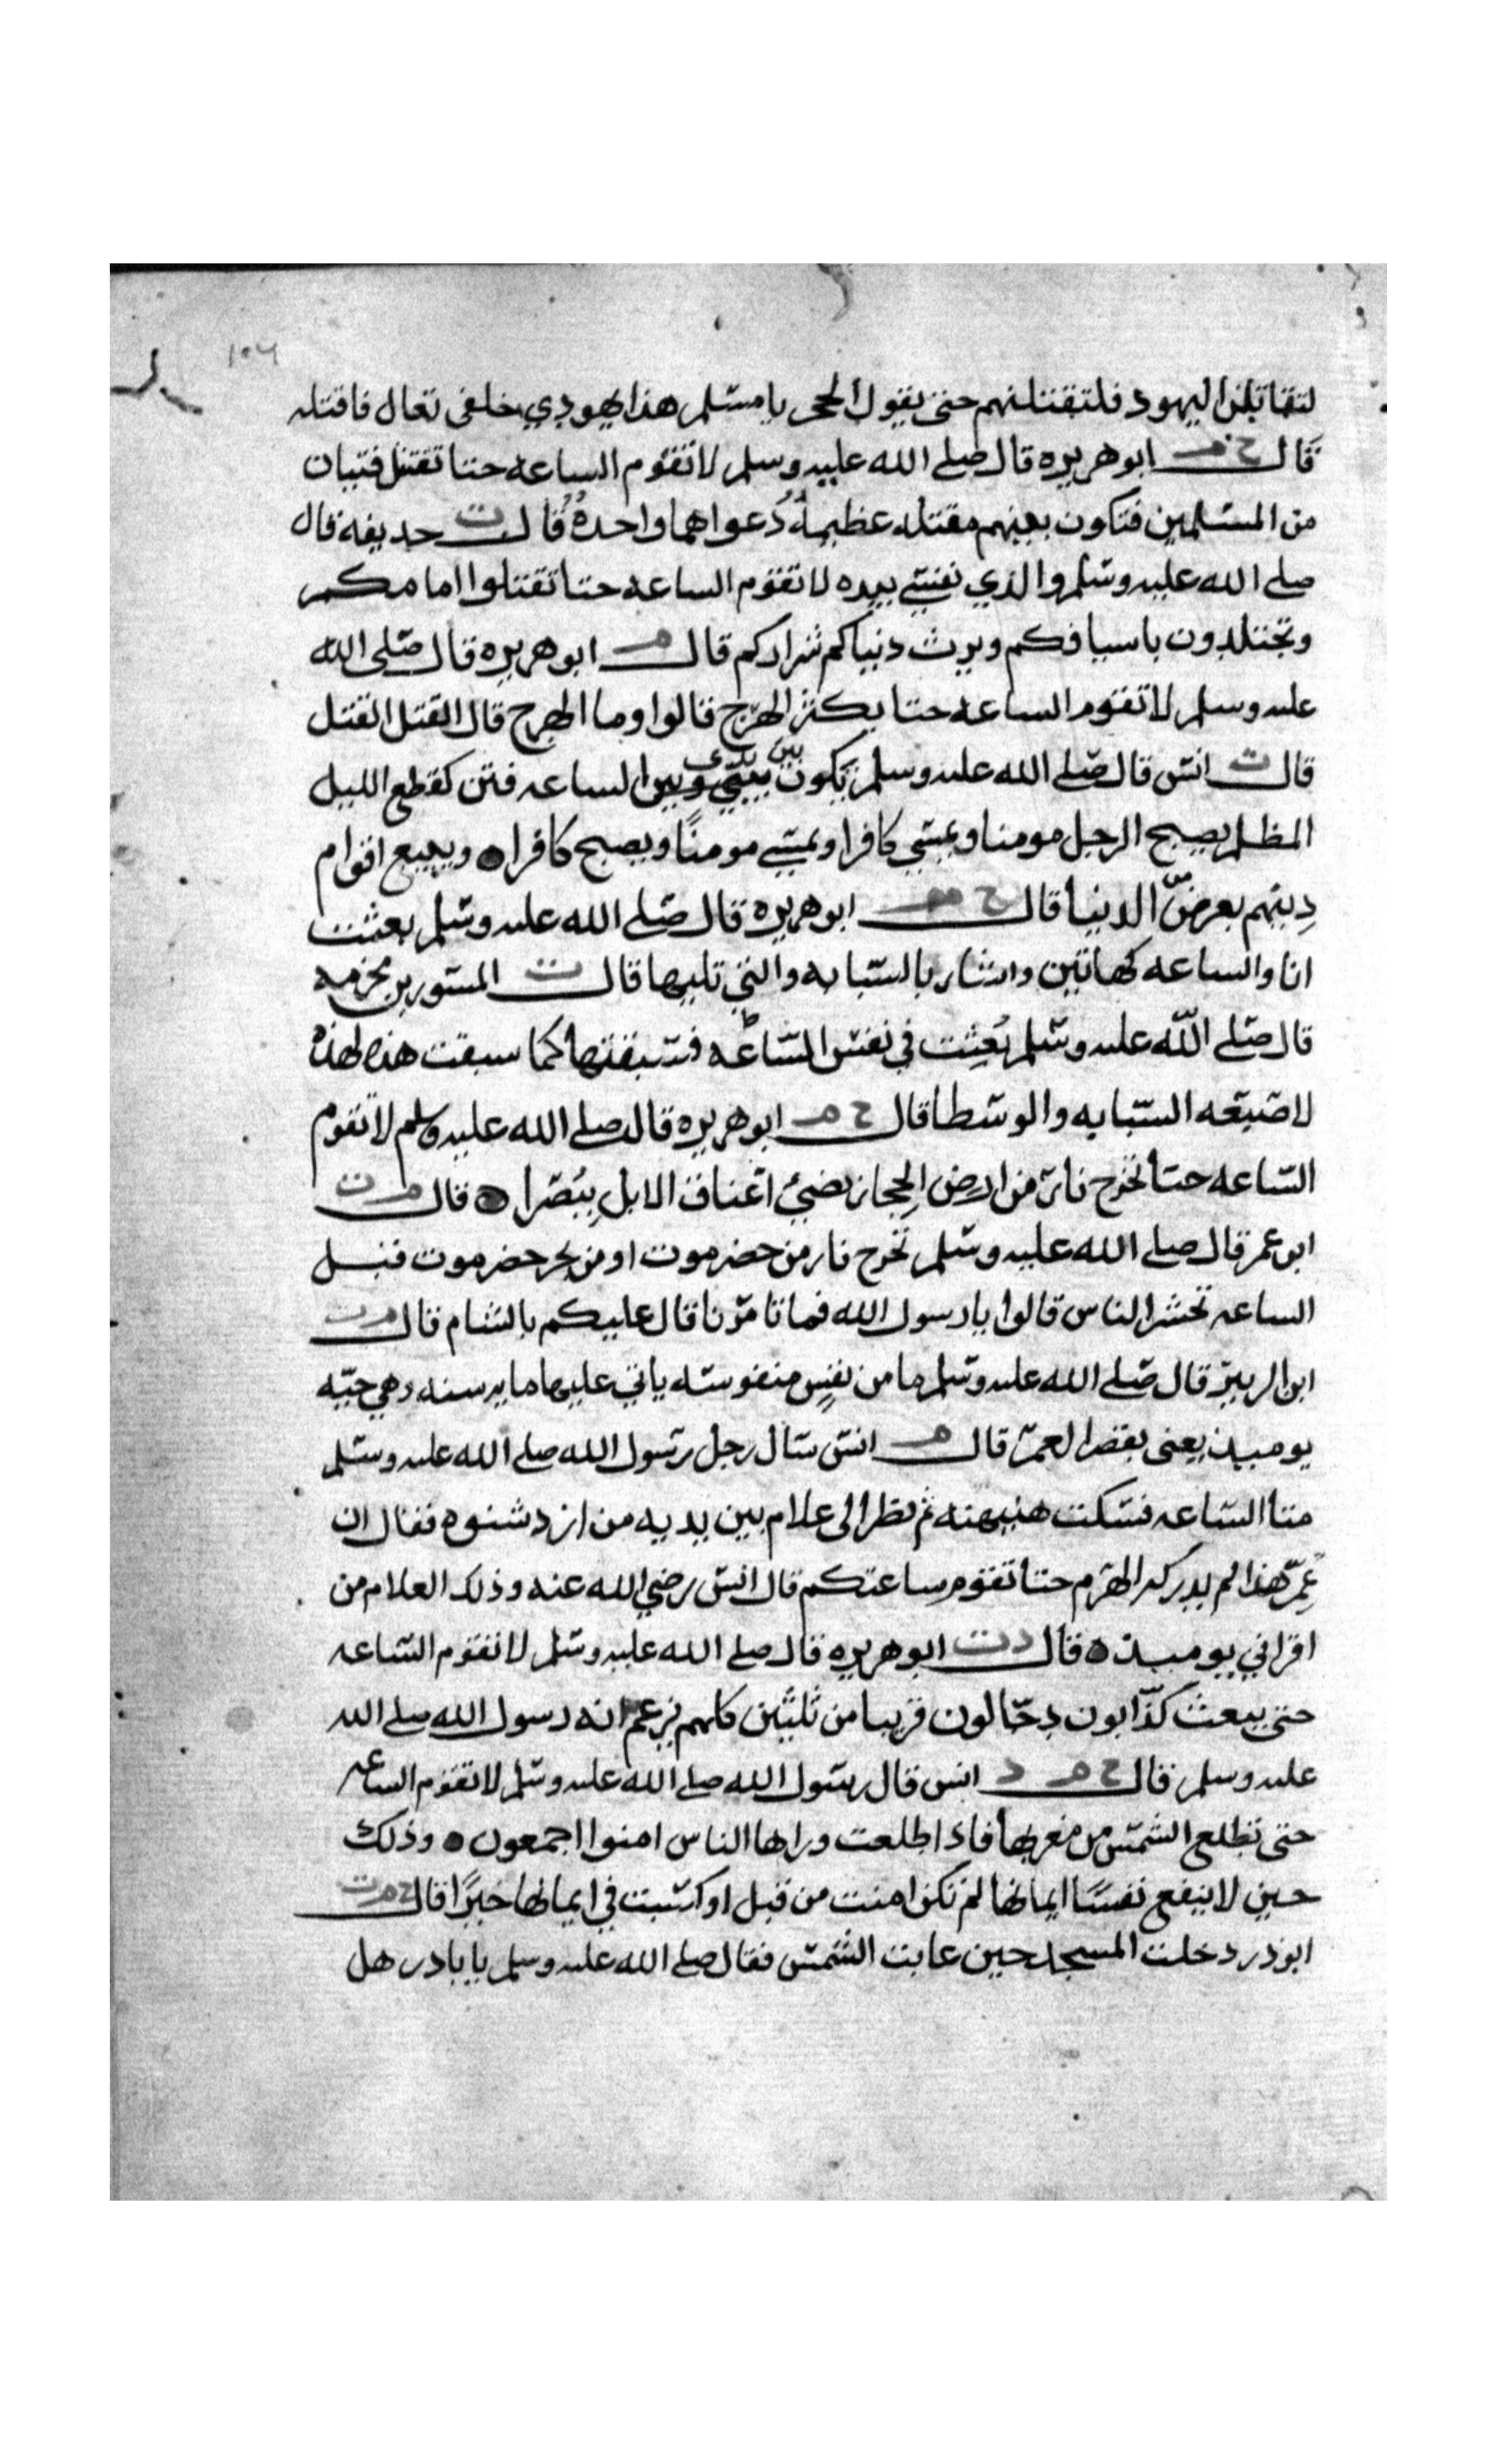 ١٠٦
لتقاتلن اليهود فلتقتلنهم حتى يقول الحجر يا مسلم هذا يهودي خلفي تعال فاقتله
قال خ م ابو هريره قال صلى الله عليه وسلم لا تقوم الساعه حتا تقتتل فتيان
من المسلمين فتكون بينهم مقتله عظيمةٌ دعواهما واحدةٌ قال ت حذيفه قال
صلى الله عليه وسلم والذي نفسي بيده لا تقوم الساعه حتا تقتلوا امامكم
وتجتلدون باسيافكم ويرث دنياكم شراركم قال م ابو هريره قال صلى الله
عليه وسلم لا تقوم الساعه حتا يكثر الهرج قالوا وما الهرج قال القتل القتل
قال ت انس قال صلى الله عليه وسلم يكون بين يدي وبين الساعه فتن كقطع الليل
المظلم يصبح الرجل مومنا ويمسي كافرا ويمسي مومنًا ويصبح كافرا ويبيع اقوام
دينهم بعرض الدنيا قال خ م ابو هريره قال صلى الله عليه وسلم بعثت
انا والساعه كهاتين واشار بالسبابه والتي تليها قال ت المستورد بن مخرمه
قال صلى الله عليه وسلم بُعِثت في نفس الساعه فسبقتها كما سبقت هذه لهذه
لاصبعه السبابه والوسطا قال خ م ابو هريره قال صلى الله عليه وسلم لا تقوم
الساعه حتا تخرج نار من ارض الحجاز تضيئ اعناق الابل ببُصرا قال م ت
ابن عمر قال صلى الله عليه وسلم تخرج نار من حضرموت او من بحر حضرموت قبل
الساعه تحشر الناس قالوا يا رسول الله فما تامرنا قال عليكم بالشام قال م ت
ابن الزبير قال صلى الله عليه وسلم ما من نفسٍ منفوسه ياتي عليها مايه سنه وهي حيه
يوميذ يعنى بقصر العمر قال م انس سال رجل رسول الله صلى الله عليه وسلم
متا الساعه فسكت هنيهنه ثم نظر الى غلام بين يديه من ازد شنوه فقال ان
عمر هذا لم يدركه الهرم حتا تقوم ساعتكم قال انس رضي الله عنه وذلك الغلام من
اقراني يوميذ قال د ت ابو هريره قال صلى الله عليه وسلم لا تقوم الساعه
حتى يبعث كذابون دجالون قريبا من ثلثين كلهم يزعم انه رسول الله صلى الله
عليه وسلم قال خ م د انس قال رسول الله صلى الله عليه وسلم لا تقوم الساعه
حتى تطلع الشمس من مغربها فاذا طلعت وراها الناس امنوا اجمعون وذلك
حين لا ينفع نفسًا ايمانها لم تكن امنت من قبل او كسبت في ايمانها خيرًا قال خ م ت
ابو ذر دخلت المسجد حين غابت الشمس فقال صلى الله عليه وسلم يا باذر هل